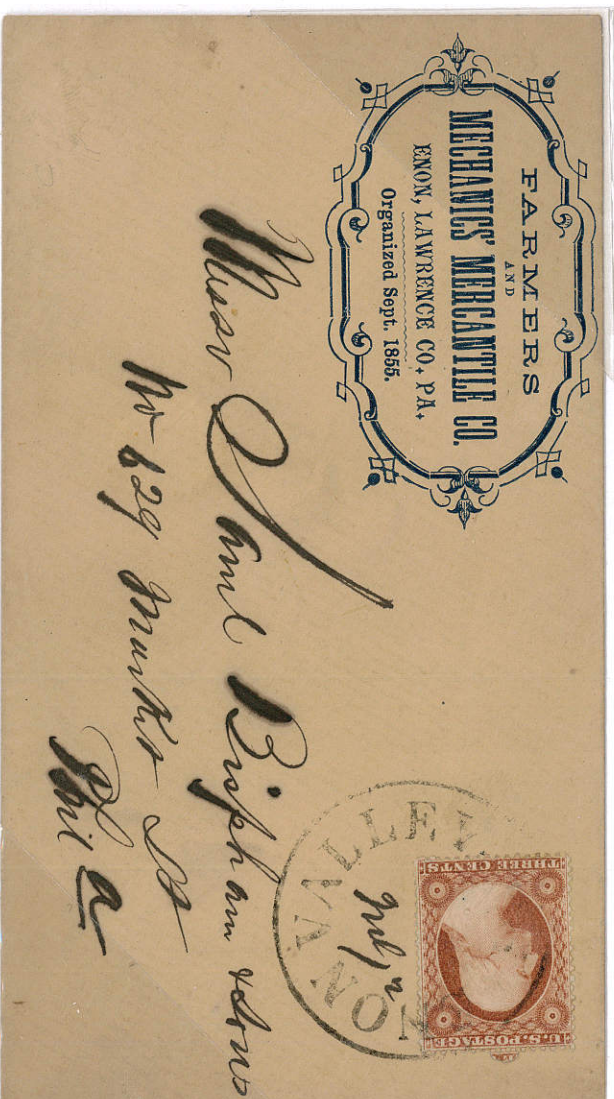 FARMERS
AND
MECHANICS' MERCANTILE CO.
ENON, LAWRENCE CO, PA.
Organized Sept. 1855.
Messr Saml Bispham & Sons
No 629 Market St
Phila
NON VALLEY
July
THREE CENTS
U.S. POSTAGE